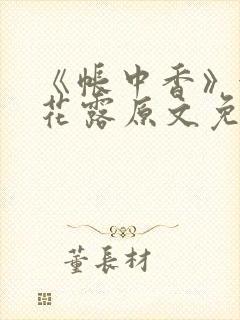 《帐中香》
花露原文免
董长材